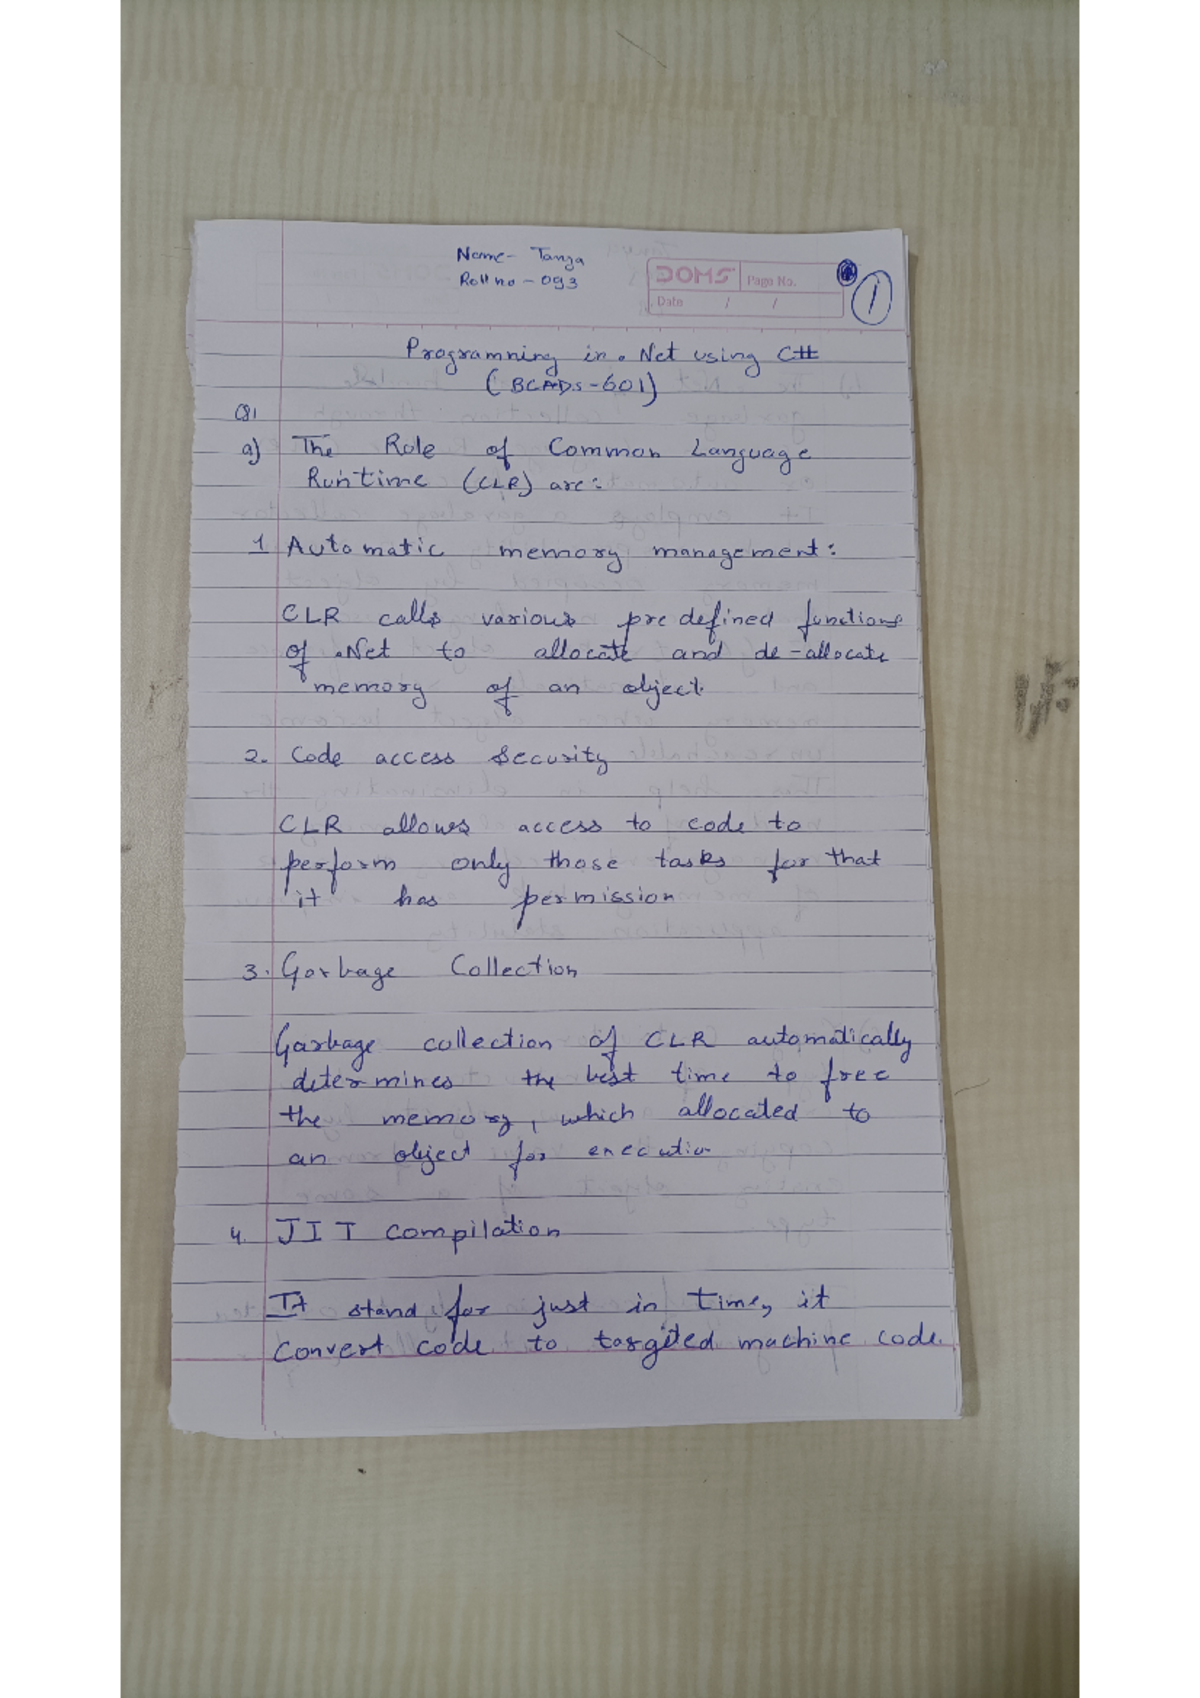 Name- Tanya
Roll no - 093
DOMS Page No.
Date / /
1
Programming in .Net using C#
(BCADS-601)
Q1
a) The Role of Common Language
Runtime (CLR) are:
1 Automatic memory management:
CLR calls various predefined functions
of .Net to allocate and de-allocate
memory of an object.
2. Code access Security
CLR allows access to code to
perform only those tasks for that
it has permission
3. Garbage Collection
Garbage collection of CLR automatically
determines the best time to free
the memory, which allocated to
an object for executio
4. JIT compilation
It stand for just in time, it
convert code to targited machine code.